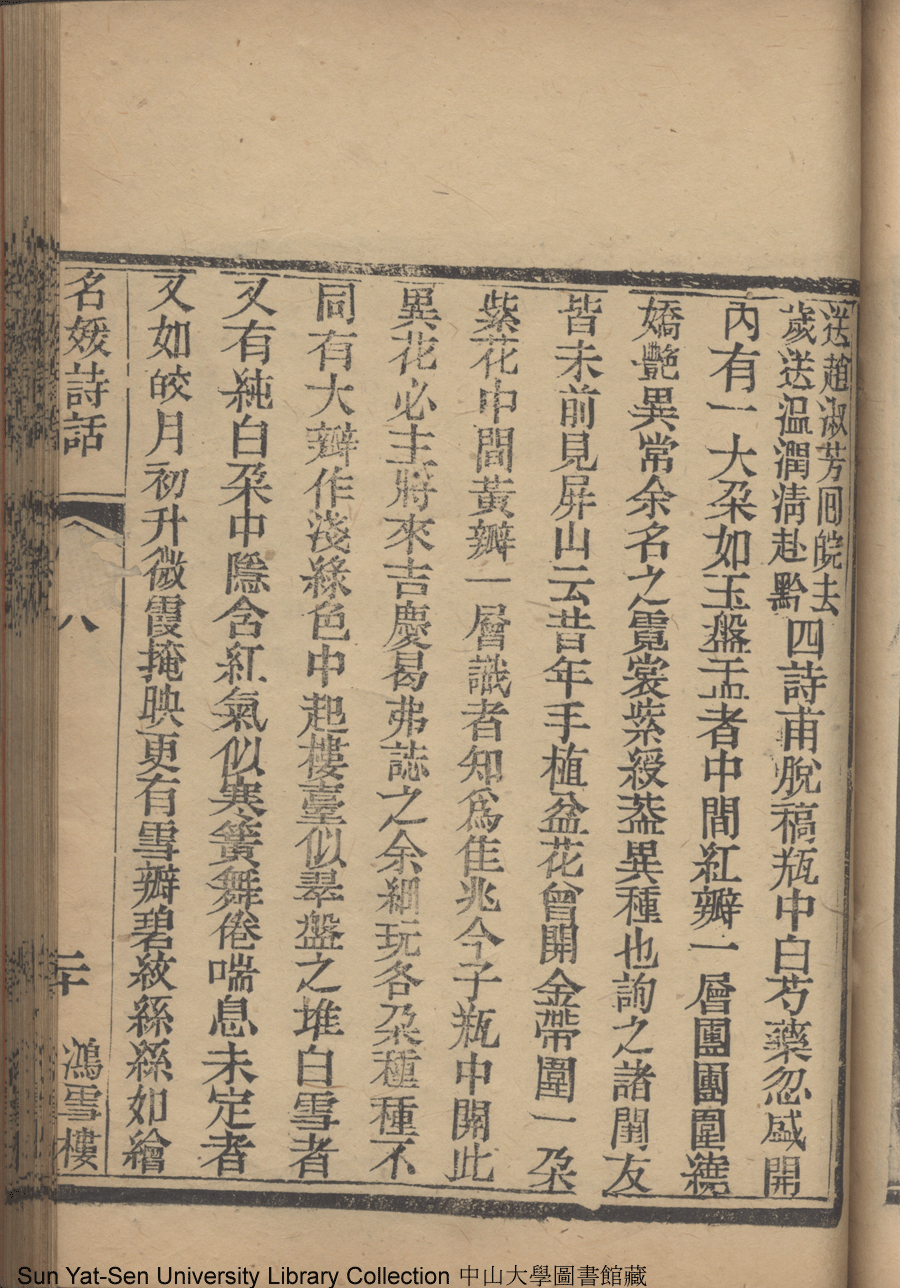 送趙淑芳囘皖去
歲送温潤清赴黔
四詩甫脫稿瓶中白芍藥忽盛開
內有一大朶如玉盤盂者中間紅瓣一層團團圍繞
嬌艷異常余名之霓裳紫綬葢異種也詢之諸閨友
皆未前見屏山云昔年手植盆花曾開金帶圍一朶
紫花中間黃瓣一層識者知爲佳兆今子瓶中開此
異花必主將來吉慶曷弗誌之余細玩各朶種種不
同有大瓣作淺綠色中起樓臺似翠盤之堆白雪者
又有純白朶中隱含紅氣似寒簧舞倦喘息未定者
又如皎月初升微霞掩映更有雪瓣碧紋絲絲如繪
名媛詩話
八
二十
鴻雪樓
Sun Yat-Sen University Library Collection 中山大學圖書館藏